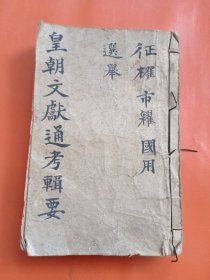 征榷 市糴 國用
選舉
皇朝文獻通考輯要